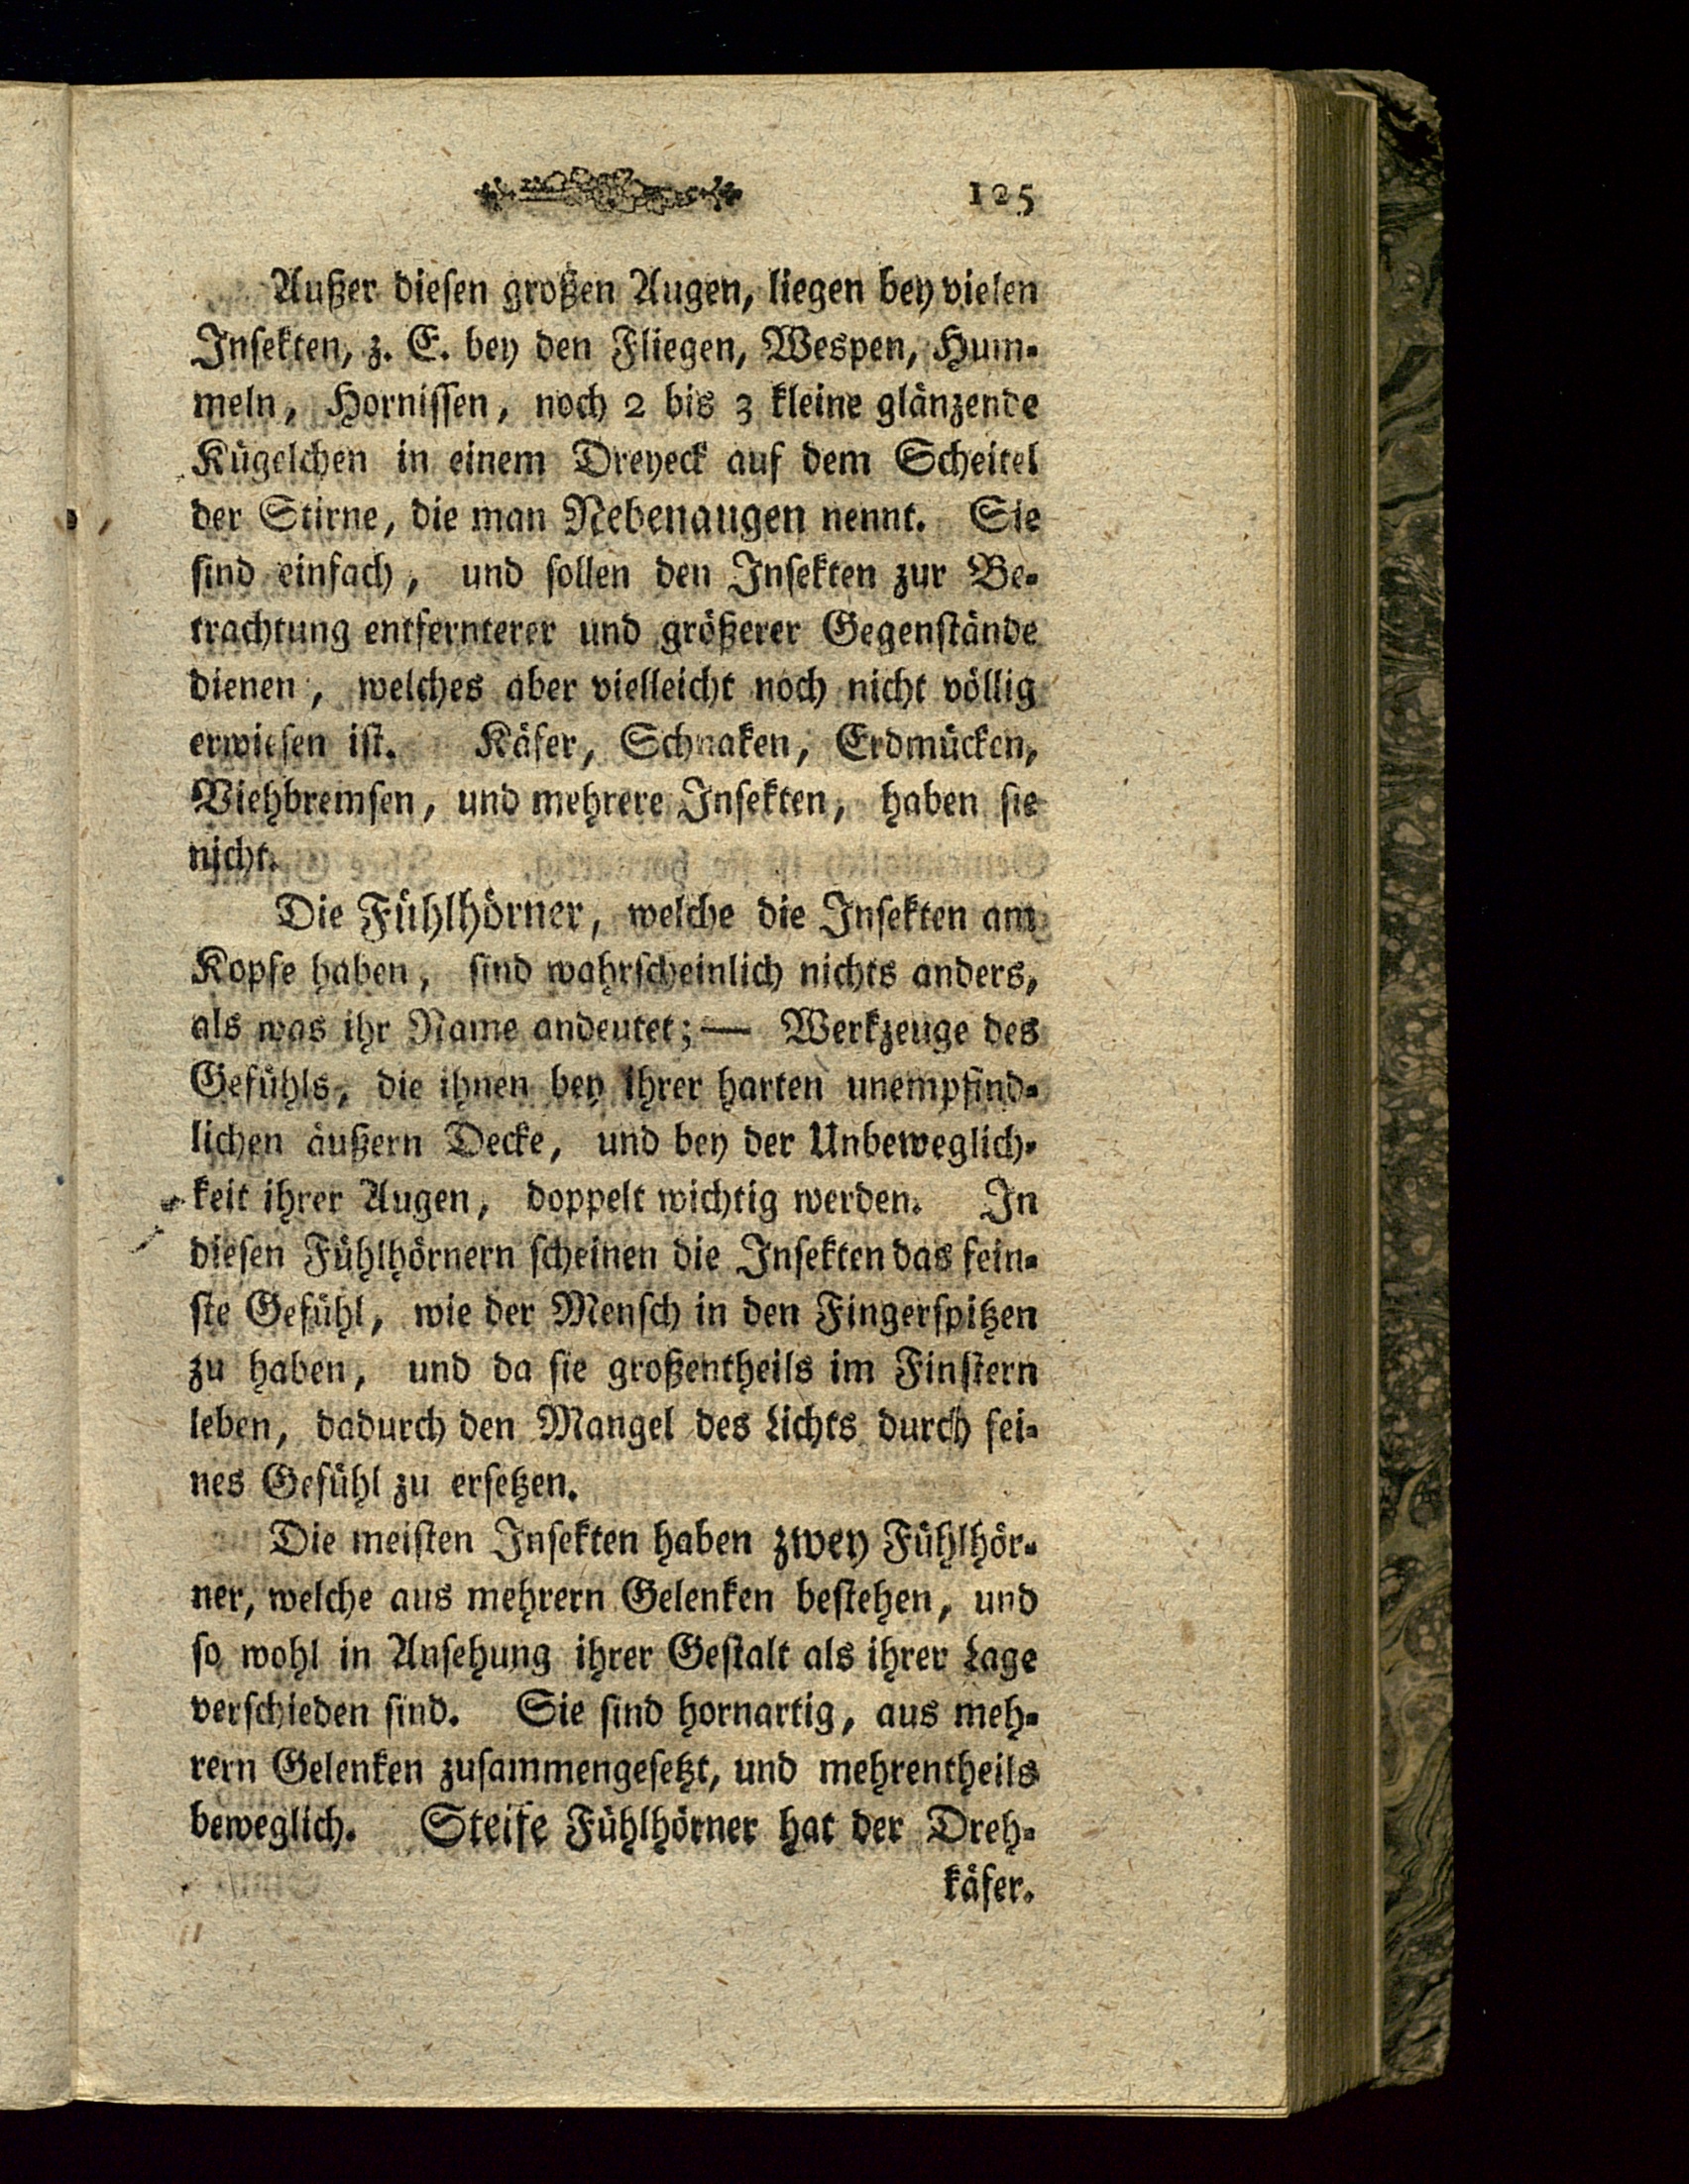 125
Außer diesen großen Augen, liegen bey vielen
Insekten, z. E. bey den Fliegen, Wespen, Hum-
meln, Hornissen, noch 2 bis 3 kleine glänzende
Kügelchen in einem Dreyeck auf dem Scheitel
der Stirne, die man Nebenaugen nennt. Sie
sind einfach, und sollen den Insekten zur Be-
trachtung entfernterer und größerer Gegenstände
dienen, welches aber vielleicht noch nicht völlig
erwiesen ist. Käfer, Schnaken, Erdmücken,
Viehbremsen, und mehrere Insekten, haben sie
nicht.
Die Fühlhörner, welche die Insekten am
Kopfe haben, sind wahrscheinlich nichts anders,
als was ihr Name andeutet; — Werkzeuge des
Gefühls, die ihnen bey ihrer harten unempfind-
lichen äußern Decke, und bey der Unbeweglich-
keit ihrer Augen, doppelt wichtig werden. In
diesen Fühlhörnern scheinen die Insekten das fein-
ste Gefühl, wie der Mensch in den Fingerspitzen
zu haben, und da sie großentheils im Finstern
leben, dadurch den Mangel des Lichts durch fei-
nes Gefühl zu ersetzen.
Die meisten Insekten haben zwey Fühlhör-
ner, welche aus mehrern Gelenken bestehen, und
so wohl in Ansehung ihrer Gestalt als ihrer Lage
verschieden sind. Sie sind hornartig, aus meh-
rern Gelenken zusammengesetzt, und mehrentheils
beweglich. Steife Fühlhörner hat der Dreh-
käfer.